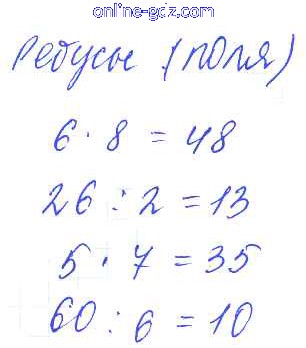 online-gdz.com
Ребусы (поля)
6 · 8 = 48
26 : 2 = 13
5 · 7 = 35
60 : 6 = 10